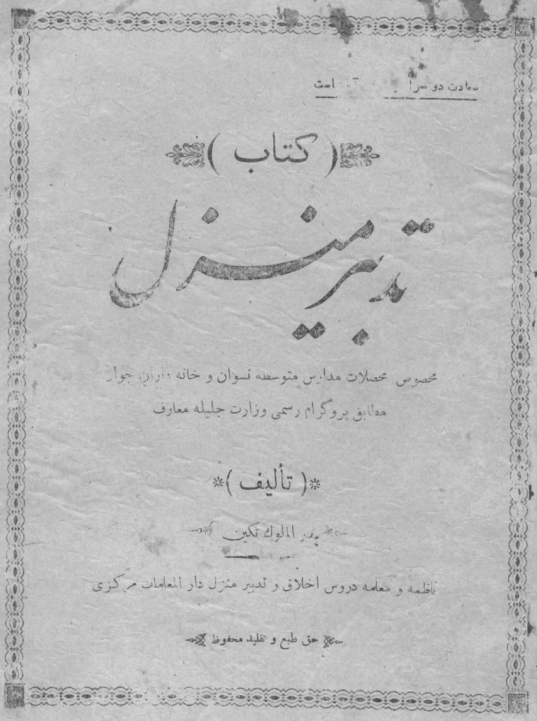 سعادت دو سرا است
( کتاب )
تدبیر منزل
مخصوص محصلات مدارس متوسطه نسوان و خانه داران جوان
مطابق پروگرام رسمی وزارت جلیله معارف
*( تألیف )*
بدر الملوک تکین
ناظمه و معلمه دروس اخلاق و تدبیر منزل دار المعلمات مرکزی
حق طبع و تقلید محفوظ